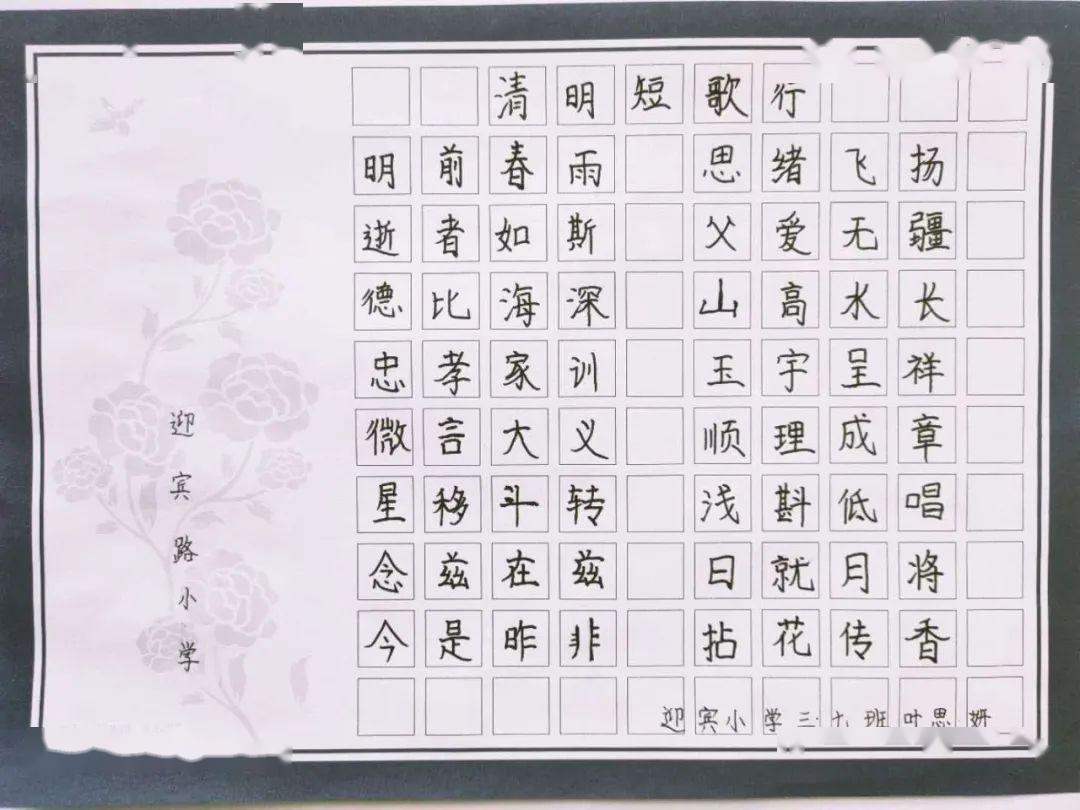 清明短歌行
明前春雨 思绪飞扬
逝者如斯 父爱无疆
德比海深 山高水长
忠孝家训 玉宇呈祥
微言大义 顺理成章
星移斗转 浅斟低唱
念兹在兹 日就月将
今是昨非 拈花传香
迎宾小学三·九班叶思妍
迎宾路小学